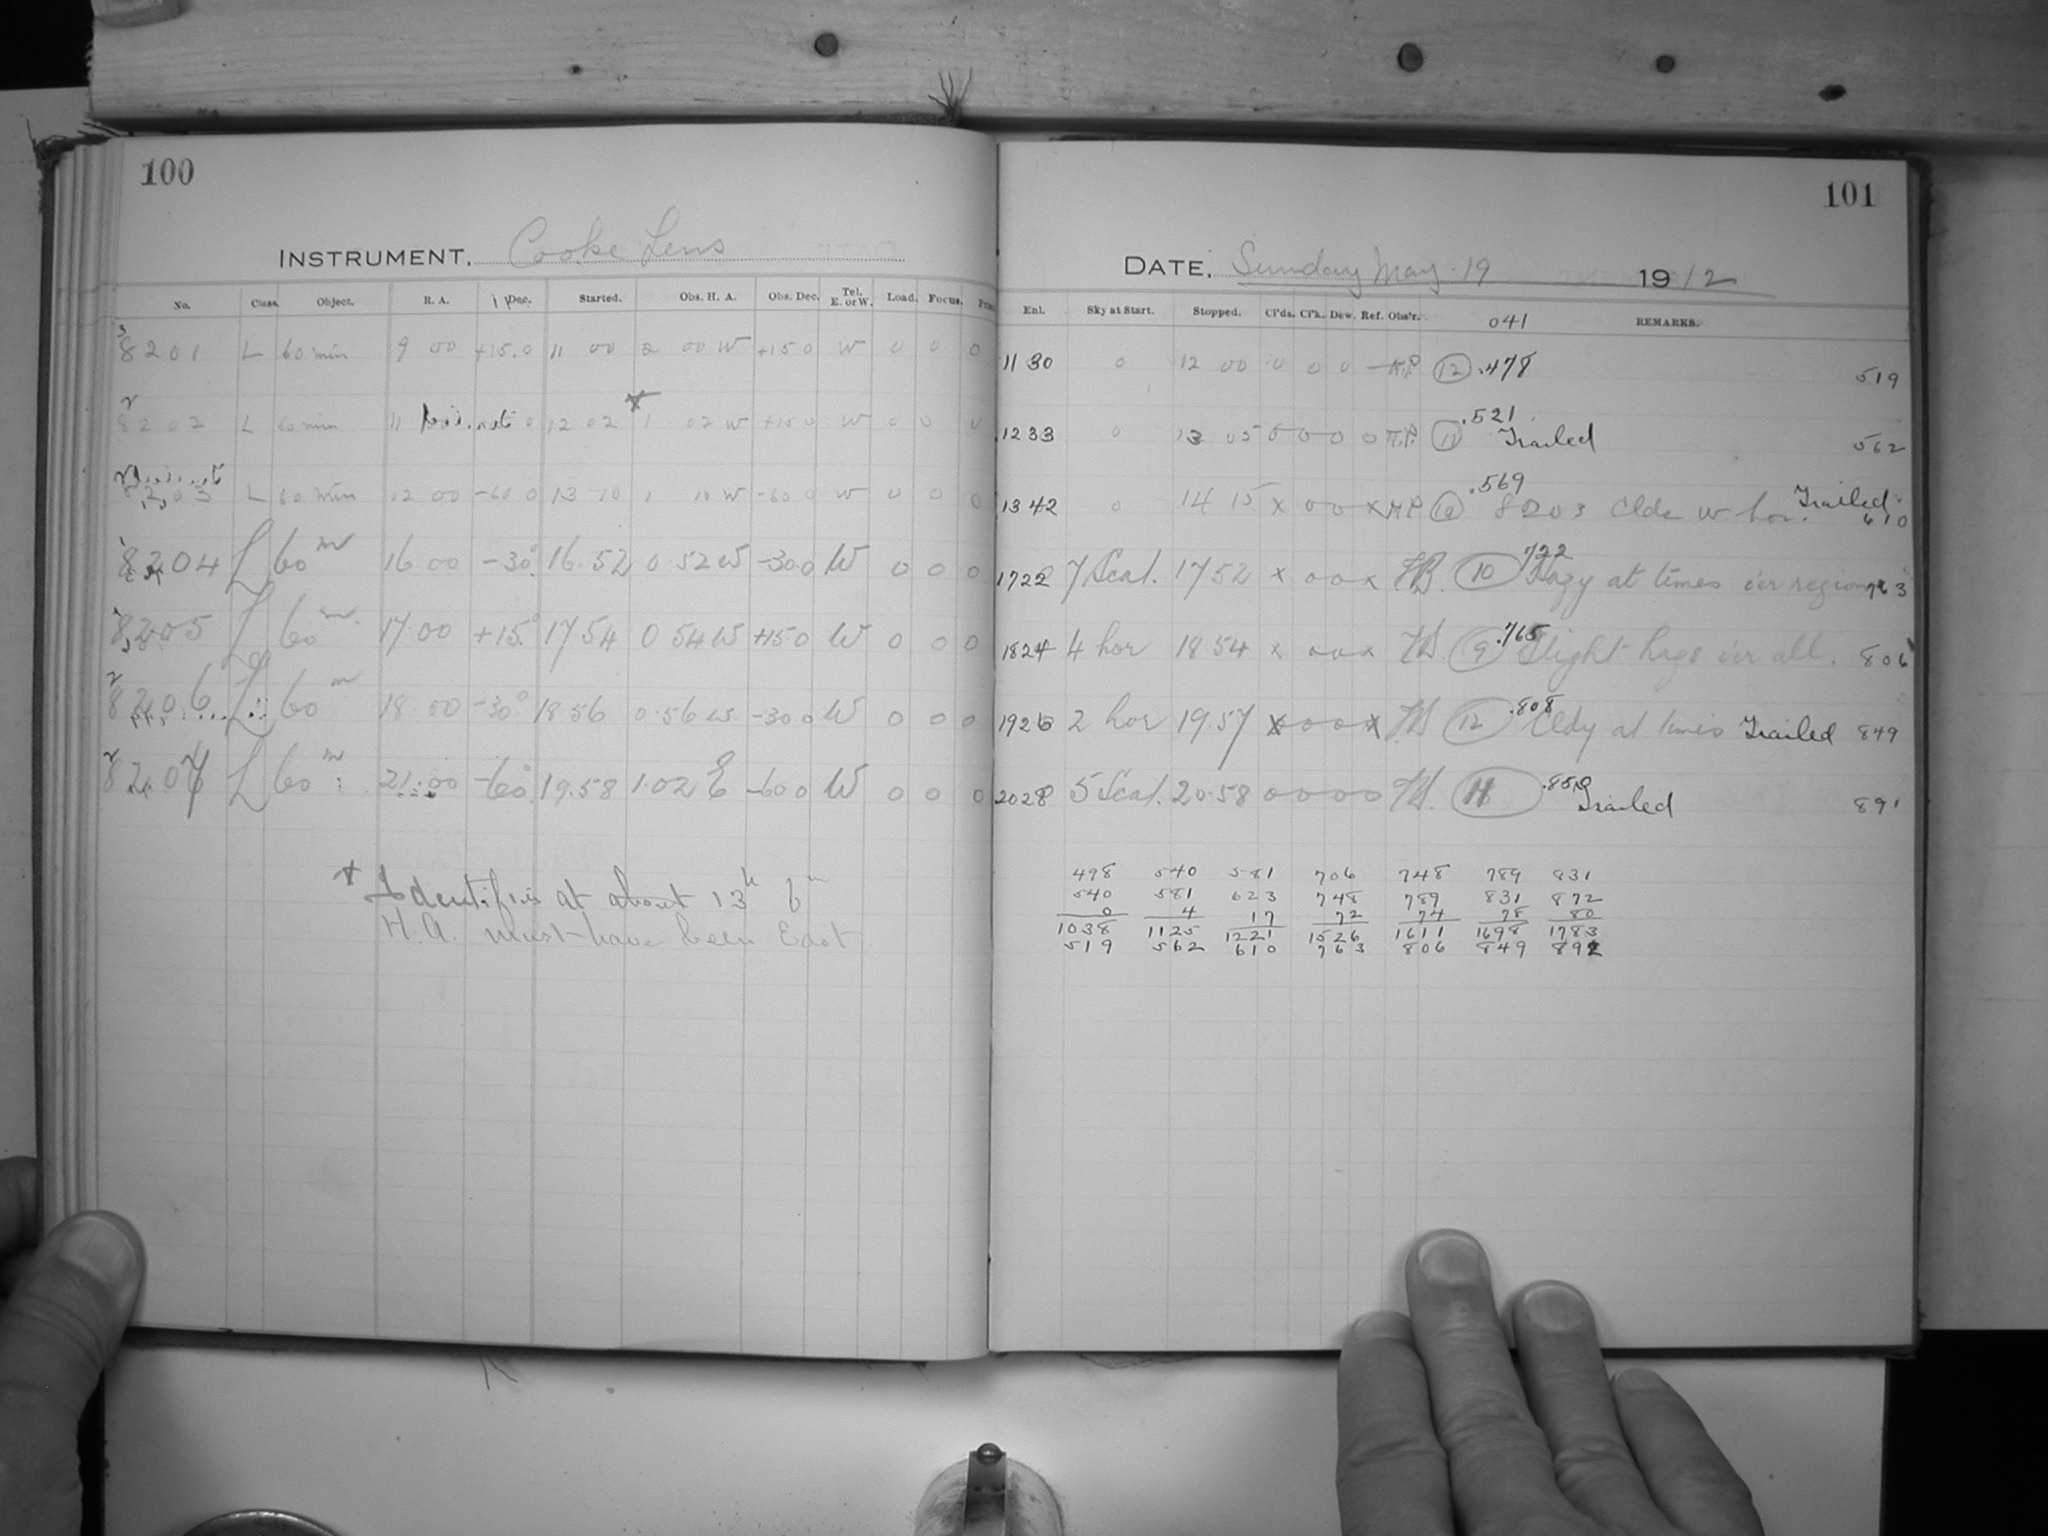 100
INSTRUMENT. Cooke Lens
No. Class. Object. R. A. Dec. Started. Obs. H. A. Obs. Dec. Tel. E. or W. Load. Focus.
3
8201 L 60 min 9 00 +15.0 11 00 2 00 W +15 0 W 0 0 0
8202 L 60 min 11 0 12 02 1 02 W +15 0 W 0 0 0
8203 L 60 min 12 00 -60 0 13 10 1 10 W -60 0 W 0 0 0
8204 L 60m 16 00 -30° 16.52 0 52 W -30 0 W 0 0 0
8205 L 60m 17.00 +15° 17.54 0 54 W +15 0 W 0 0 0
8206 L 60m 18.00 -30° 18.56 0.56 W -30 0 W 0 0 0
8207 L 60m 21.00 -60° 19.58 1.02 E -60 0 W 0 0 0
at about 13h 6m
H.A. must have been East
101
DATE, Sunday May 19 1912
Enl. Sky at Start. Stopped. Cl'ds. Cl'k. Dew. Ref. Obs'r. 041 REMARKS.
11 30 0 12 00 0 0 0 12 .478 519
.521
12 33 0 13 05 0 0 0 0 11 Trailed 562
.569
13 42 0 14 15 x 0 0 x 10 8203 Clds W hor. Trailed 610
722
1722 7 Scat. 17 52 x 0 0 x 10 Hazy at times o'er region 763
.765
1824 4 hor 18 54 x 0 0 x 9 Slight haze o'er all. 806
.808
1926 2 hor 19.57 x 0 0 x 12 Cldy at times Trailed 849
2028 5 Scat. 20.58 0 0 0 0 11 .850 Trailed 891
498 540 581 706 748 789 831
540 581 623 748 789 831 872
0 4 17 72 74 78 80
1038 1125 1221 1526 1611 1698 1783
519 562 610 763 806 849 892